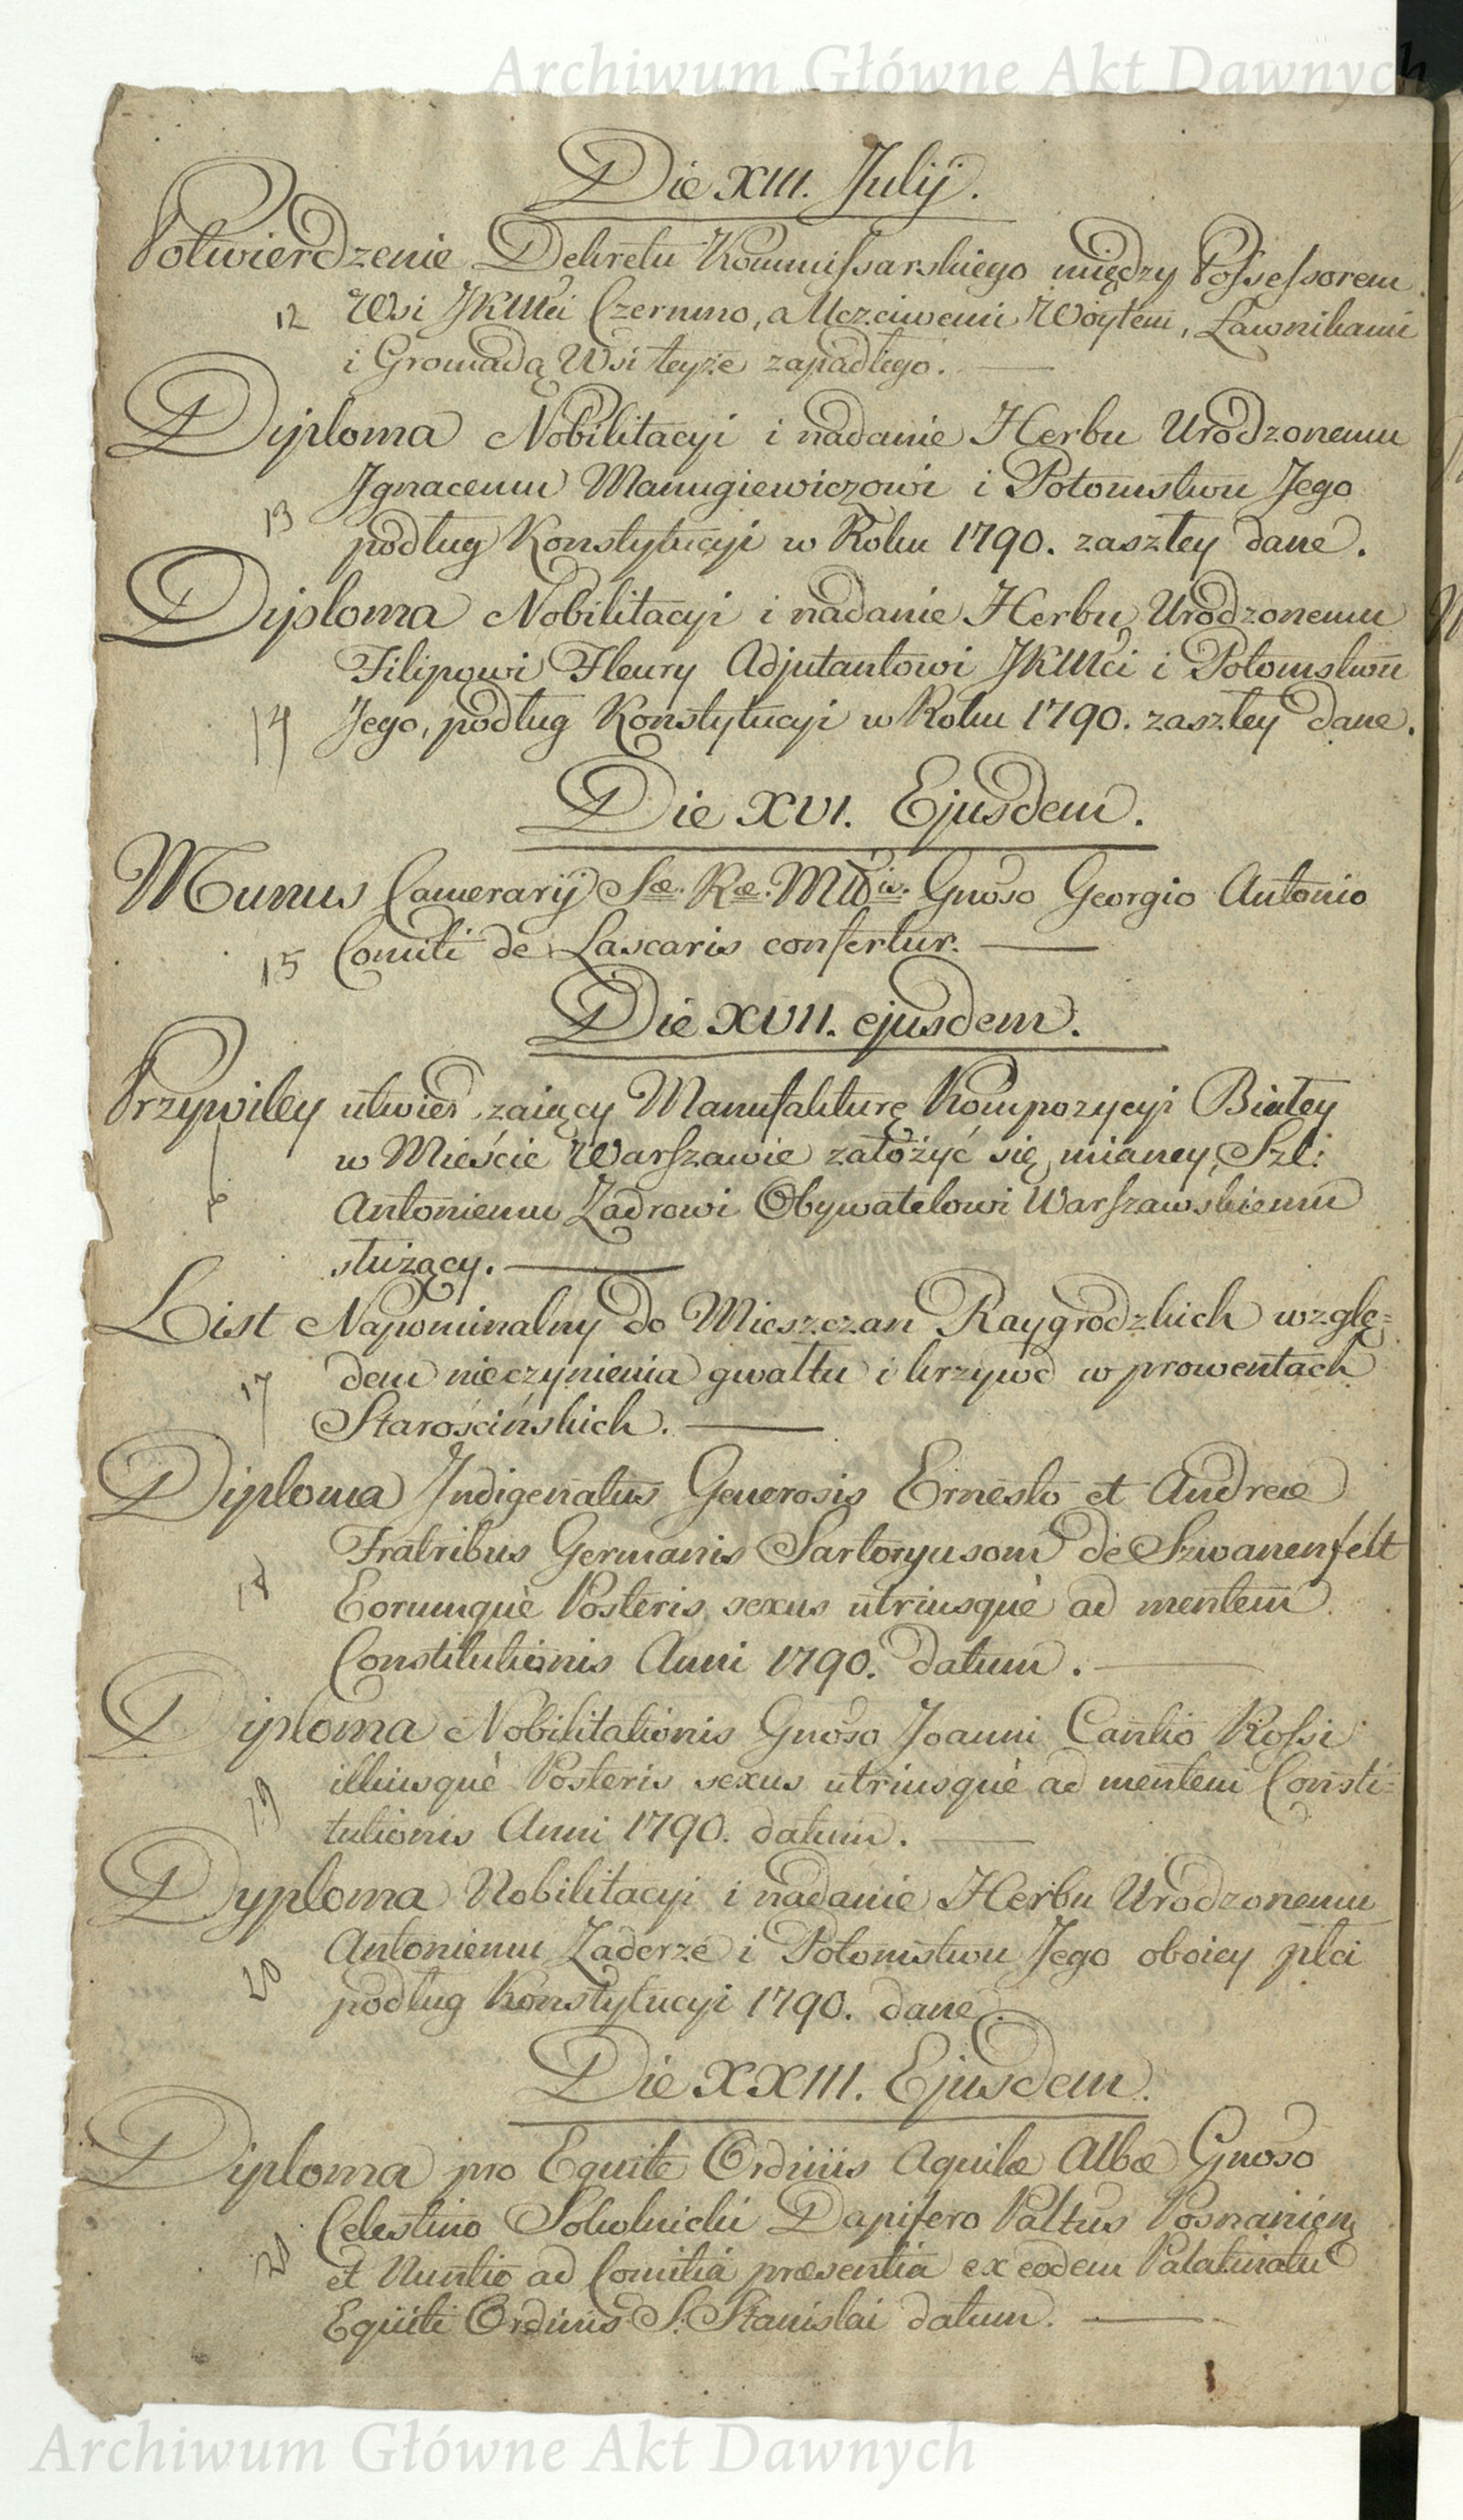 Archiwum Główne Akt Dawnych
Die XIII. Julij.
Potwierdzenie Dekretu Kommissarskiego między Possessorem
12 Wsi JKMci Czermno, a Uczciwemi Woytem, Ławnikami
i Gromadą Wsi teyże zapadłego.
Dyploma Nobilitacyi i nadanie Herbu Urodzonemu
Ignacemu Manugiewiczowi i Potomstwu Jego
13 podług Konstytucyi w Roku 1790. zaszłey dane.
Dyploma Nobilitacyi i nadanie Herbu Urodzonemu
Filipowi Fleury Adjutantowi JKMci i Potomstwu
14 Jego, podług Konstytucyi w Roku 1790. zaszłey dane.
Die XVI. Ejusdem.
Munus Camerarij Sæ. Ræ. Mtis. Gnoso Georgio Antonio
15 Comiti de Lascaris confertur.
Die XVII. ejusdem.
Przywiley utwierdzaiący Manufakturę Kompozycyi Białey
w Mieście Warszawie założyć się mianey, Szl:
Antoniemu Zadrowi Obywatelowi Warszawskiemu
służący.
List Napominalny do Mieszczan Raygrodzkich wzglę=
17 dem nieczynienia gwałtu i krzywd w prowentach
Starościńskich.
Diploma Indigenatus Generosis Ernesto et Andreæ
Fratribus Germanis Sartoryusom de Szwanenfelt
18 Eorumquè Posteris sexus utriusquè ad mentem
Constitutionis Anni 1790. datum.
Diploma Nobilitationis Gnoso Joanni Cantio Rossi
illiusquè Posteris sexus utriusquè ad mentem Consti=
19 tutionis Anni 1790. datum.
Dyploma Nobilitacyi i nadanie Herbu Urodzonemu
Antoniemu Zaderze i Potomstwu Jego oboiey płci
20 podług Konstytucyi 1790. dane.
Die XXIII. Ejusdem.
Diploma pro Equite Ordinis Aquilæ Albæ Gnoso
Celestino Sokolnicki Dapifero Paltus Posnanien
21 et Nuntio ad Comitia præsentia ex eodem Palatinatu
Equiti Ordinis S. Stanislai datum.
Archiwum Główne Akt Dawnych